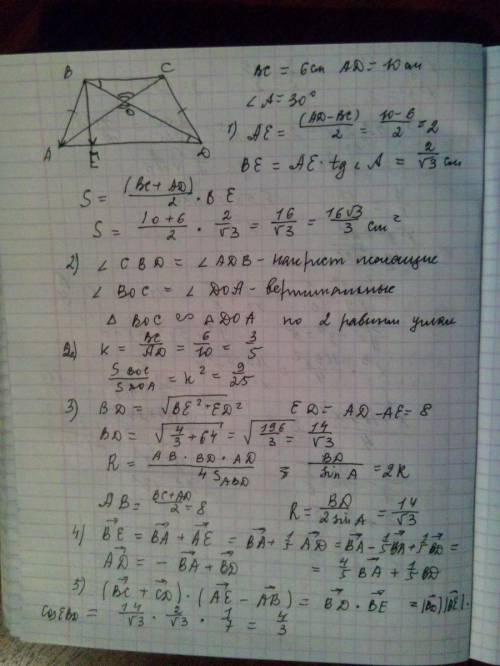 B C
A E D O
BC = 6 см AD = 10 см
∠A = 30°
1) AE = (AD-BC)/2 = (10-6)/2 = 2
BE = AE · tg ∠A = 2/√3 см
S = (BC + AD)/2 · BE
S = (10+6)/2 · 2/√3 = 16/√3 = 16√3/3 см²
2) ∠CBD = ∠ADB - накрест лежащие
∠BOC = ∠DOA - вертикальные
Δ BOC ∽ ΔDOA по 2 равным углам
k = BC/AD = 6/10 = 3/5
S BOC / S DOA = k² = 9/25
3) BD = √(BE² + ED²) ED = AD - AE = 8
BD = √(4/3 + 64) = √(196/3) = 14/√3
R = (AB · BD · AD)/(4 S ABD) ; BD/sin A = 2R
AB = (BC+AD)/2 = 8 R = BD/(2 sin A) = 14/√3
4) BE = BA + AE = BA + 1/5 AD = BA - 1/5 BA + 1/5 BD =
AD = - BA + BD = 4/5 BA + 1/5 BD
5) (BC + CD) · (AE - AB) = BD · BE = |BD| |BE| ·
cos EBD = 14/√3 · 2/√3 · 1/7 = 4/3